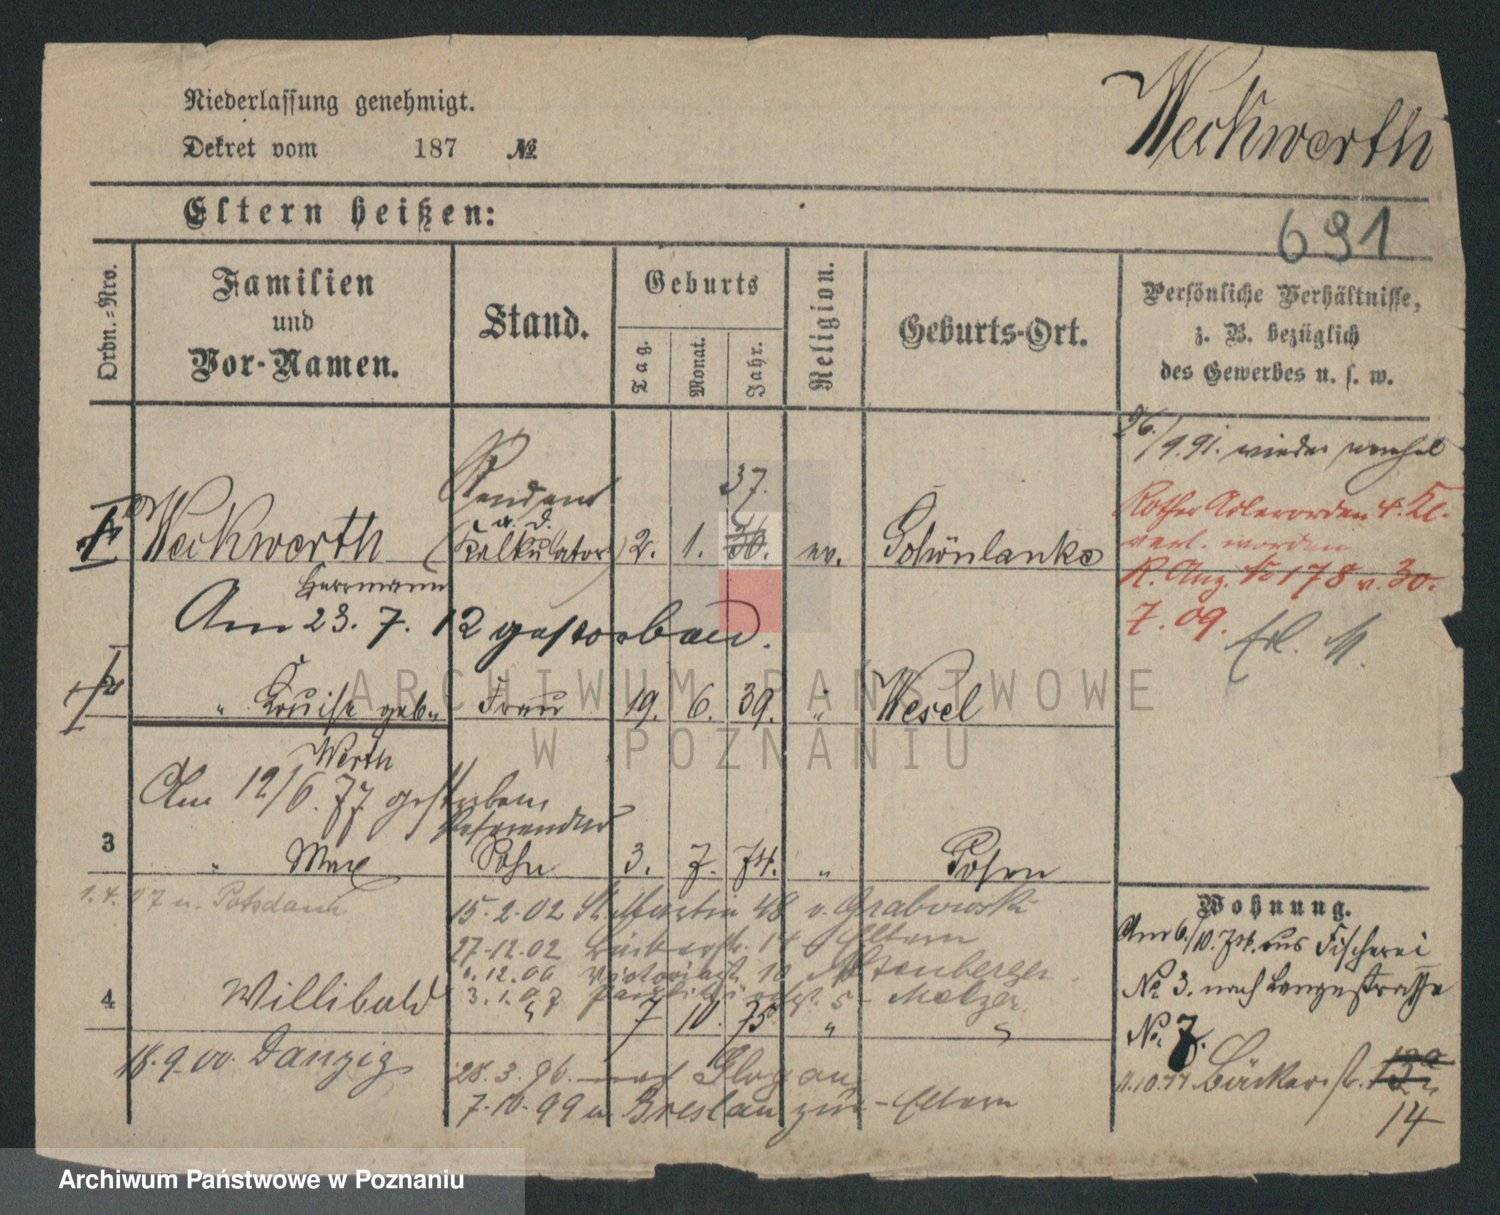 Weckwerth
Niederlassung genehmigt.
Dekret vom 187 №
Eltern heißen:
691
Ordn.-Nro.
Familien
und
Vor-Namen.
Stand.
Geburts
Tag.
Monat.
Jahr.
Religion.
Geburts-Ort.
Persönliche Verhältnisse,
z. B. bezüglich
des Gewerbes u. s. w.
26./9.91. wieder
Rother Adlerorden 4. Kl.
verl. worden
R. Anz. № 178 v. 30.
7. 09.
Rendant
a. D.
37.
1 Weckwerth (Kalkulator) 2. 1. 36. ev. Schönlanke
Herrmann
Am 23. 7. 12 gestorben.
2 " Louise geb. Frau 19. 6. 39. " Wesel
Werth
Am 12/6. 77 gestorben
Referendar
3 " Max Sohn 3. 7. 74. " Posen
1.4.07 n. Potsdam
15.2.02 St. Martin 48 v. Grabowski
27.12.02 Bäckerstr. 14 Eltern
12.00 Victoriastr. 10 Altenberger
3.1.07 5 - Metzger
4 Willibald 7 10. 75 " "
18.9.00. Danzig
28.3.96. nach Glogau
7.10.99 n. Breslau zur - Eltern
Wohnung.
Am 6./10.74. aus Fischerei
№ 3. nach Langestraße
№. 7.
1.10.77 Bäckerstr. 13a
14
ARCHIWUM PAŃSTWOWE
W POZNANIU
Archiwum Państwowe w Poznaniu